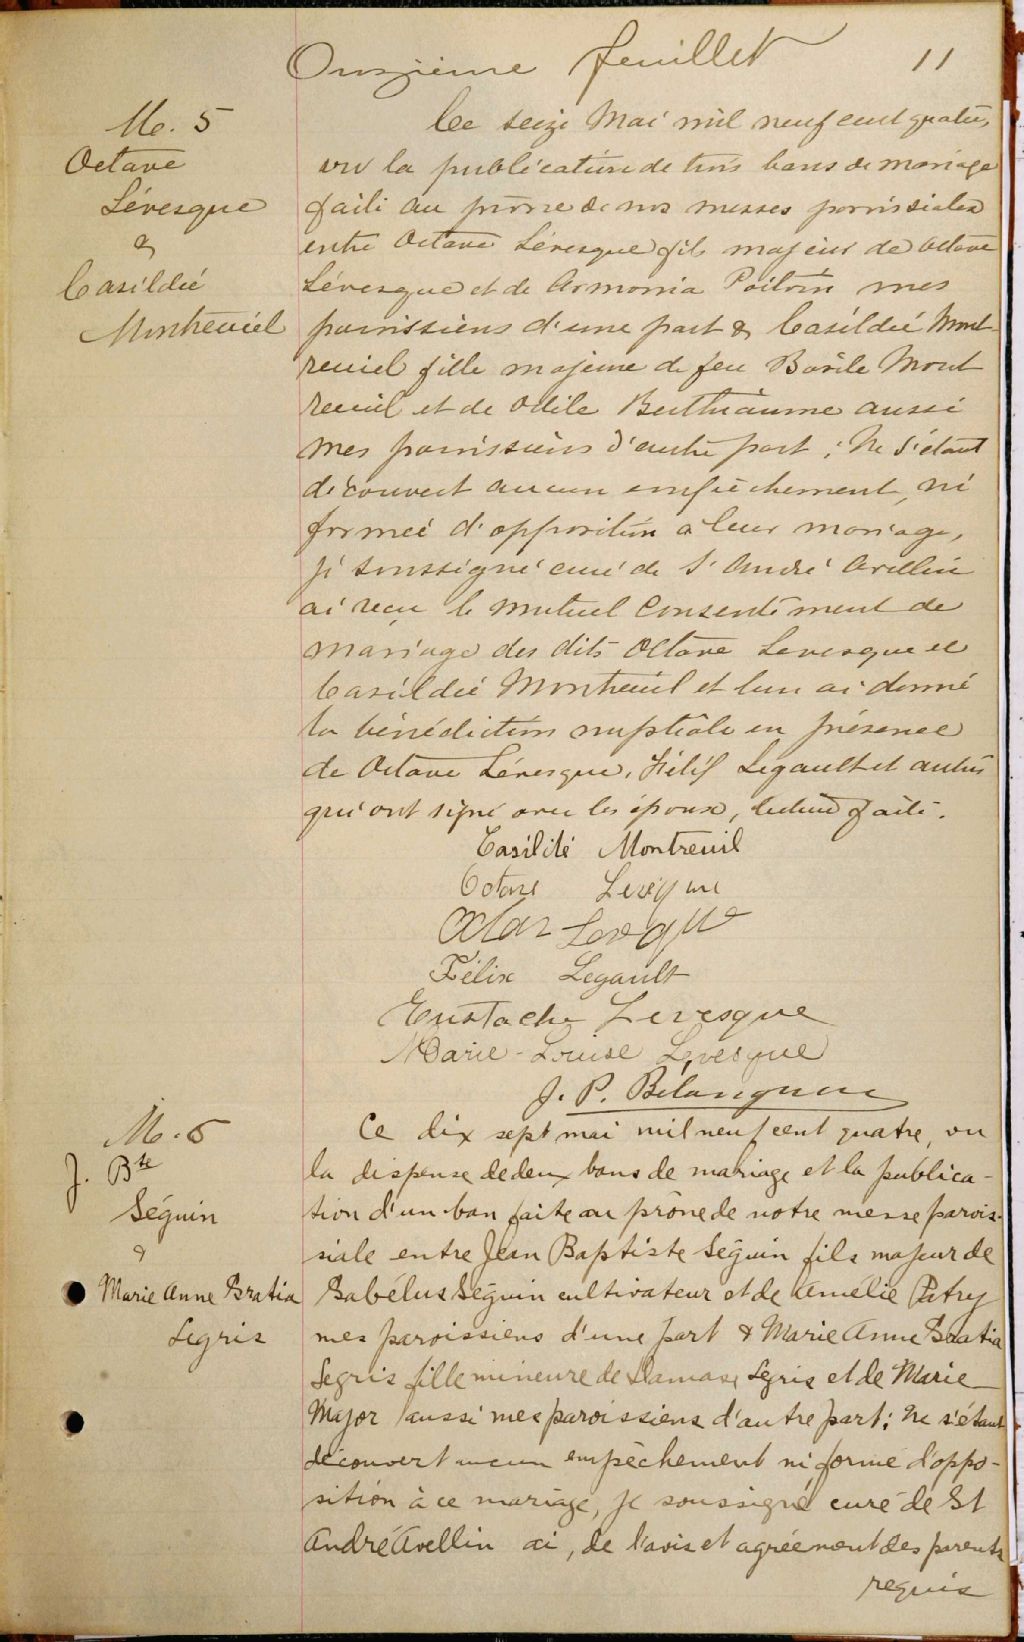 Onzième feuillet 11
M. 5
Octave
Lévesque
&
Casildée
Montreuil
Ce seize Mai mil neuf cent quatre,
vu la publication de trois bans de mariage
faite au prône de nos messes paroissiales
entre Octave Lévesque fils majeur de Octave
Lévesque et de Armonia Poitvin mes
paroissiens d'une part & Casildée Mont-
reuil fille majeure de feu Basile Mont
reuil et de Odile Berthiaume aussi
mes paroissiens d'autre part ; Ne s'étant
découvert aucun empêchement, ni
formée d'opposition à leur mariage,
je soussigné curé de St André Avellin
ai reçu le mutuel consentement de
mariage des dits Octave Levesque et
Casildée Montreuil et leur ai donné
la bénédiction nuptiale en présence
de Octave Lévesque, Félix Legault et autres
qui ont signé avec les époux, lecture faite.
Casildé Montreuil
Octave Levêque
Levêque
Félix Legault
Eustache Levesque
Marie-Louise Lévesque
J. P. Bélanger
M. 6
J. Bte
Séguin
&
Marie Anne Bratia
Legris
Ce dix sept mai mil neuf cent quatre, vu
la dispense de deux bans de mariage et la publica-
tion d'un ban faite au prône de notre messe parois-
siale entre Jean Baptiste Séguin fils majeur de
Babélus Séguin cultivateur et de Amélie Patry
mes paroissiens d'une part & Marie Anne Bratia
Legris fille mineure de Damase Legris et de Marie
Major aussi mes paroissiens d'autre part ; Ne s'étant
découvert aucun empêchement ni formé d'oppo-
sition à ce mariage, je soussigné curé de St
André Avellin ai, de l'avis et agréement des parents
requis